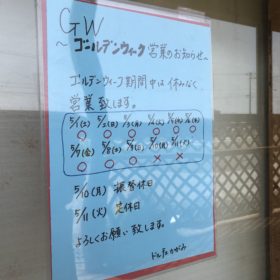 GW
～ゴールデンウィーク営業のお知らせ～
ゴールデンウィーク期間中は休みなく
営業致します。
5/1(土) 5/2(日) 5/3(月) 5/4(火) 5/5(水) 5/6(木)
○ ○ ○ ○ ○ ○
5/7(金) 5/8(土) 5/9(日) 5/10(月) 5/11(火)
○ ○ ○ × ×
5/10(月) 振替休日
5/11(火) 定休日
よろしくお願い致します。